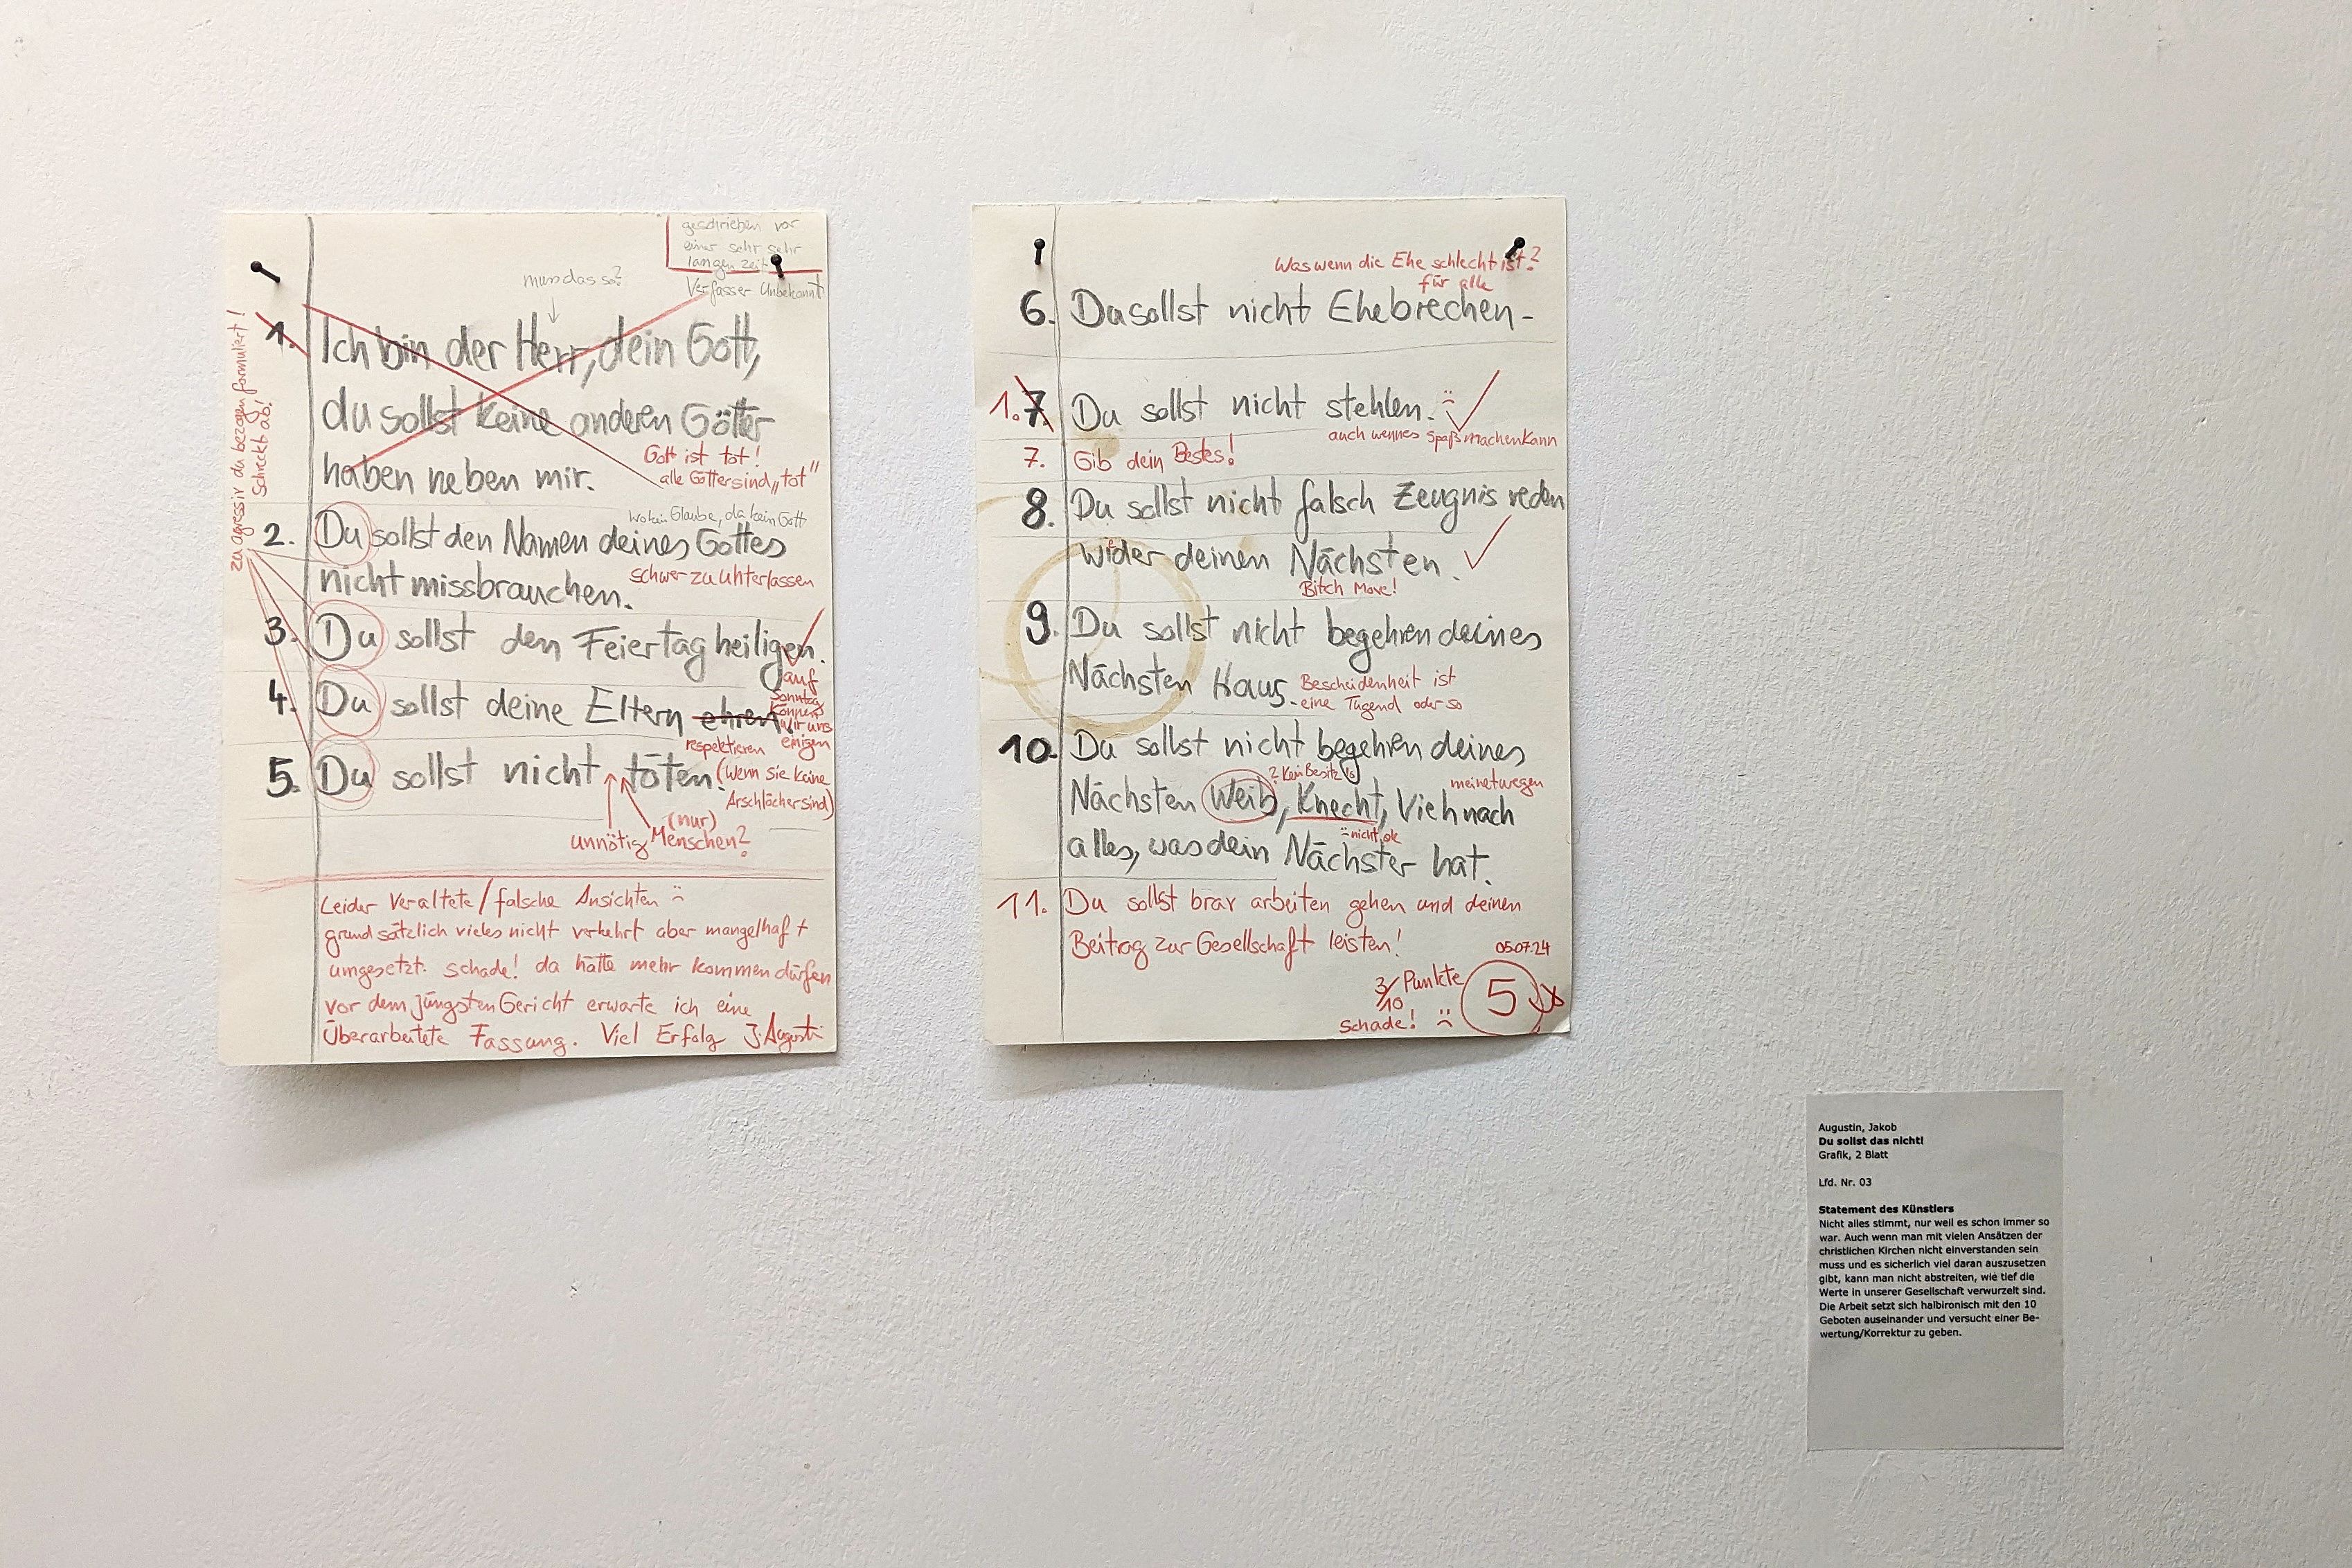 geschrieben vor
einer sehr sehr
langen Zeit
Verfasser Unbekannt
muss das so?
zu agressiv du bezogen formuliert!
Schreckt ab!
1. Ich bin der Herr, dein Gott,
du sollst keine anderen Götter
haben neben mir.
Gott ist tot!
alle Götter sind „tot"
wo kein Glaube, da kein Gott
2. Du sollst den Namen deines Gottes
nicht missbrauchen.
schwer zu unterlassen
3. Du sollst den Feiertag heiligen.
auf
Sonntag
können
wir uns
einigen
4. Du sollst deine Eltern ehren.
respektieren
(wenn sie keine
Arschlöcher sind)
5. Du sollst nicht töten.
unnötig
(nur)
Menschen?
Leider Veraltete/falsche Ansichten :(
grundsätzlich vieles nicht verkehrt aber mangelhaft
umgesetzt. schade! da hätte mehr kommen dürfen
vor dem jüngsten Gericht erwarte ich eine
Überarbeitete Fassung. Viel Erfolg J. Augustin
Was wenn die Ehe schlecht ist?
für alle
6. Du sollst nicht Ehebrechen.
1. 7. Du sollst nicht stehlen. :(
auch wenn es Spaß machen kann
7. Gib dein Bestes!
8. Du sollst nicht falsch Zeugnis reden
wider deinen Nächsten.
Bitch Move!
9. Du sollst nicht begehren deines
Nächsten Haus.
Bescheidenheit ist
eine Tugend oder so
10. Du sollst nicht begehren deines
? kein Besitz
meinetwegen
Nächsten Weib, Knecht, Vieh noch
:( nicht ok
alles, was dein Nächster hat.
11. Du sollst brav arbeiten gehen und deinen
Beitrag zur Gesellschaft leisten!
05.07.24
3/10 Punkte
schade! :(
5
Augustin, Jakob
Du sollst das nicht!
Grafik, 2 Blatt
Lfd. Nr. 03
Statement des Künstlers
Nicht alles stimmt, nur weil es schon immer so
war. Auch wenn man mit vielen Ansätzen der
christlichen Kirchen nicht einverstanden sein
muss und es sicherlich viel daran auszusetzen
gibt, kann man nicht abstreiten, wie tief die
Werte in unserer Gesellschaft verwurzelt sind.
Die Arbeit setzt sich halbironisch mit den 10
Geboten auseinander und versucht einer Be-
wertung/Korrektur zu geben.